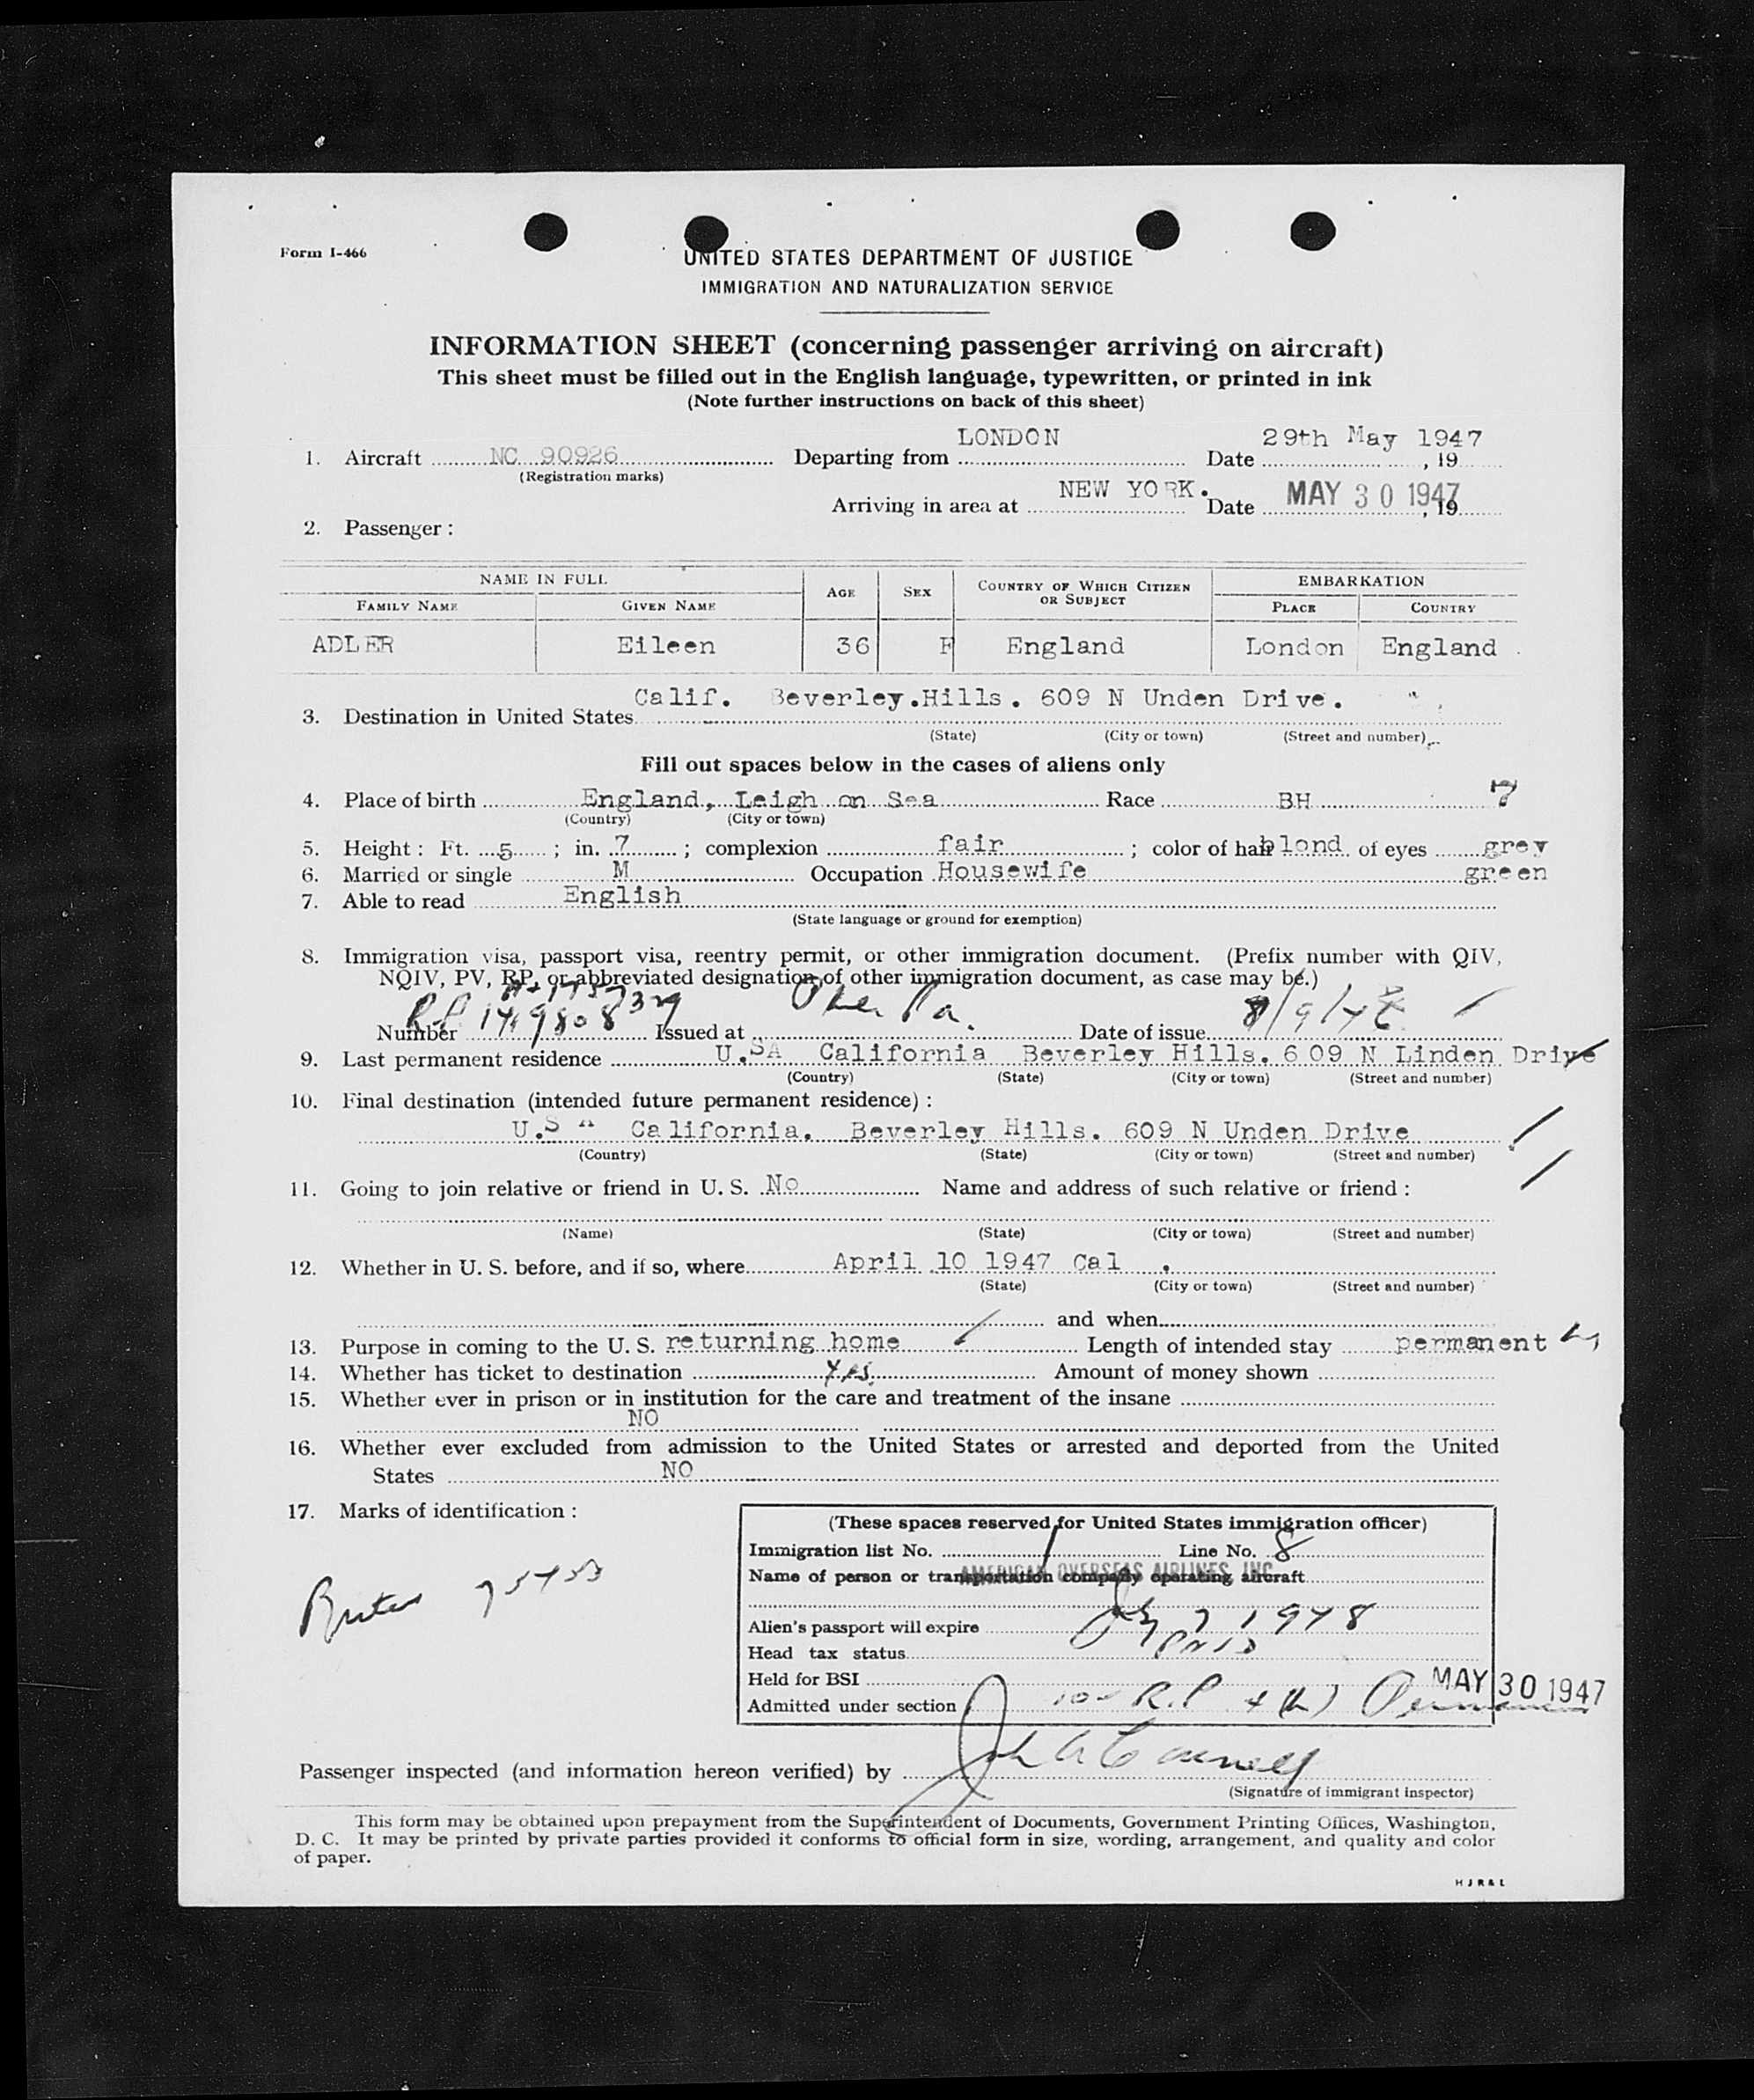 Form I-466
UNITED STATES DEPARTMENT OF JUSTICE
IMMIGRATION AND NATURALIZATION SERVICE
INFORMATION SHEET (concerning passenger arriving on aircraft)
This sheet must be filled out in the English language, typewritten, or printed in ink
(Note further instructions on back of this sheet)
1. Aircraft NC 90926 Departing from LONDON Date 29th May 1947, 19
(Registration marks)
Arriving in area at NEW YORK. Date MAY 30 1947, 19
2. Passenger:
NAME IN FULL AGE SEX COUNTRY OF WHICH CITIZEN OR SUBJECT EMBARKATION
FAMILY NAME GIVEN NAME PLACE COUNTRY
ADLER Eileen 36 F England London England
3. Destination in United States Calif. Beverley.Hills. 609 N Unden Drive.
(State) (City or town) (Street and number)
Fill out spaces below in the cases of aliens only
4. Place of birth England, Leigh on Sea Race BH 7
(Country) (City or town)
5. Height: Ft. 5; in. 7; complexion fair; color of hair blond of eyes grey
6. Married or single M Occupation Housewife green
7. Able to read English
(State language or ground for exemption)
8. Immigration visa, passport visa, reentry permit, or other immigration document. (Prefix number with QIV,
NQIV, PV, RP, or abbreviated designation of other immigration document, as case may be.)
Number RP Issued at Pa. Date of issue
9. Last permanent residence U.SA California Beverley Hills. 609 N Linden Drive
(Country) (State) (City or town) (Street and number)
10. Final destination (intended future permanent residence):
U.S A California. Beverley Hills. 609 N Unden Drive
(Country) (State) (City or town) (Street and number)
11. Going to join relative or friend in U. S. No Name and address of such relative or friend:
(Name) (State) (City or town) (Street and number)
12. Whether in U. S. before, and if so, where April 10 1947 Cal.
(State) (City or town) (Street and number)
and when
13. Purpose in coming to the U. S. returning home Length of intended stay permanent
14. Whether has ticket to destination Yes. Amount of money shown
15. Whether ever in prison or in institution for the care and treatment of the insane
NO
16. Whether ever excluded from admission to the United States or arrested and deported from the United
States NO
17. Marks of identification:
(These spaces reserved for United States immigration officer)
Immigration list No. 1 Line No. 8
Name of person or transportation company operating aircraft AMERICAN OVERSEAS AIRLINES, INC.
Alien's passport will expire 7 1948
Head tax status
Held for BSI MAY 30 1947
Admitted under section R.P 4 (b)
Passenger inspected (and information hereon verified) by
(Signature of immigrant inspector)
This form may be obtained upon prepayment from the Superintendent of Documents, Government Printing Offices, Washington,
D. C. It may be printed by private parties provided it conforms to official form in size, wording, arrangement, and quality and color
of paper.
H J R & L